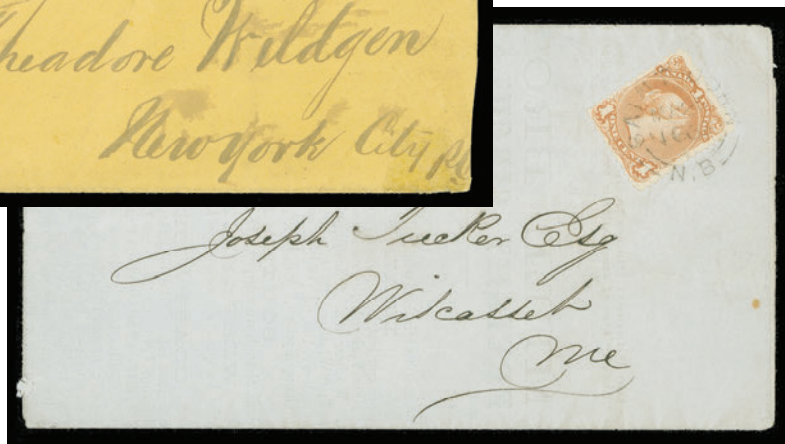 Theadore Wildgen
New York City
Joseph Tucker Esq
Wiscasset
Me
N.B